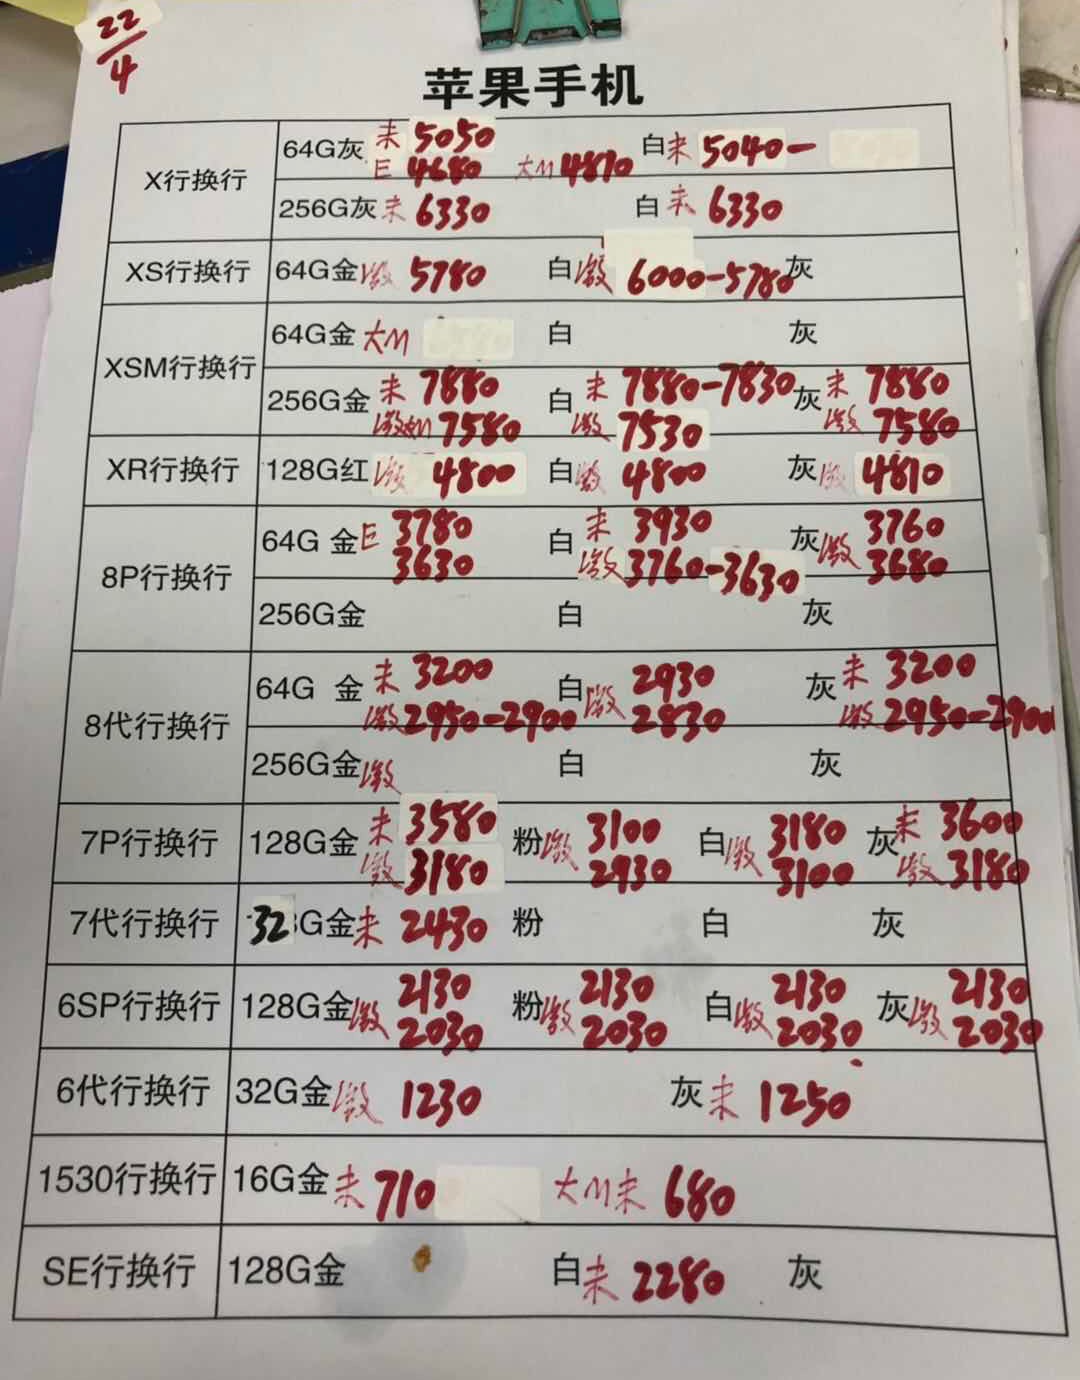 22/4
苹果手机
X行换行 64G灰 未 5050 白未 5040-
E 4680 大M 4870
256G灰未 6330 白未 6330
XS行换行 64G金激 5780 白激 6000-5780灰
XSM行换行 64G金 大M 白 灰
256G金 未 7880 白 未 7880-7830 灰 未 7880
激 7580 激 7530 激 7580
XR行换行 128G红 激 4800 白激 4800 灰激 4810
8P行换行 64G 金E 3780 白 未 3930 灰激 3760
3630 激3760-3630 3680
256G金 白 灰
8代行换行 64G 金 未 3200 白激 2930 灰 未 3200
激2950-2900 2830 激2950-2900
256G金激 白 灰
7P行换行 128G金 未 3580 粉激 3100 白激 3180 灰未 3600
激 3180 2930 3100 激 3180
7代行换行 32G金未 2430 粉 白 灰
6SP行换行 128G金激 2130 粉激 2130 白激 2130 灰激 2130
2030 2030 2030 2030
6代行换行 32G金激 1230 灰未 1250
1530行换行 16G金未 710 大M未 680
SE行换行 128G金 白未 2280 灰